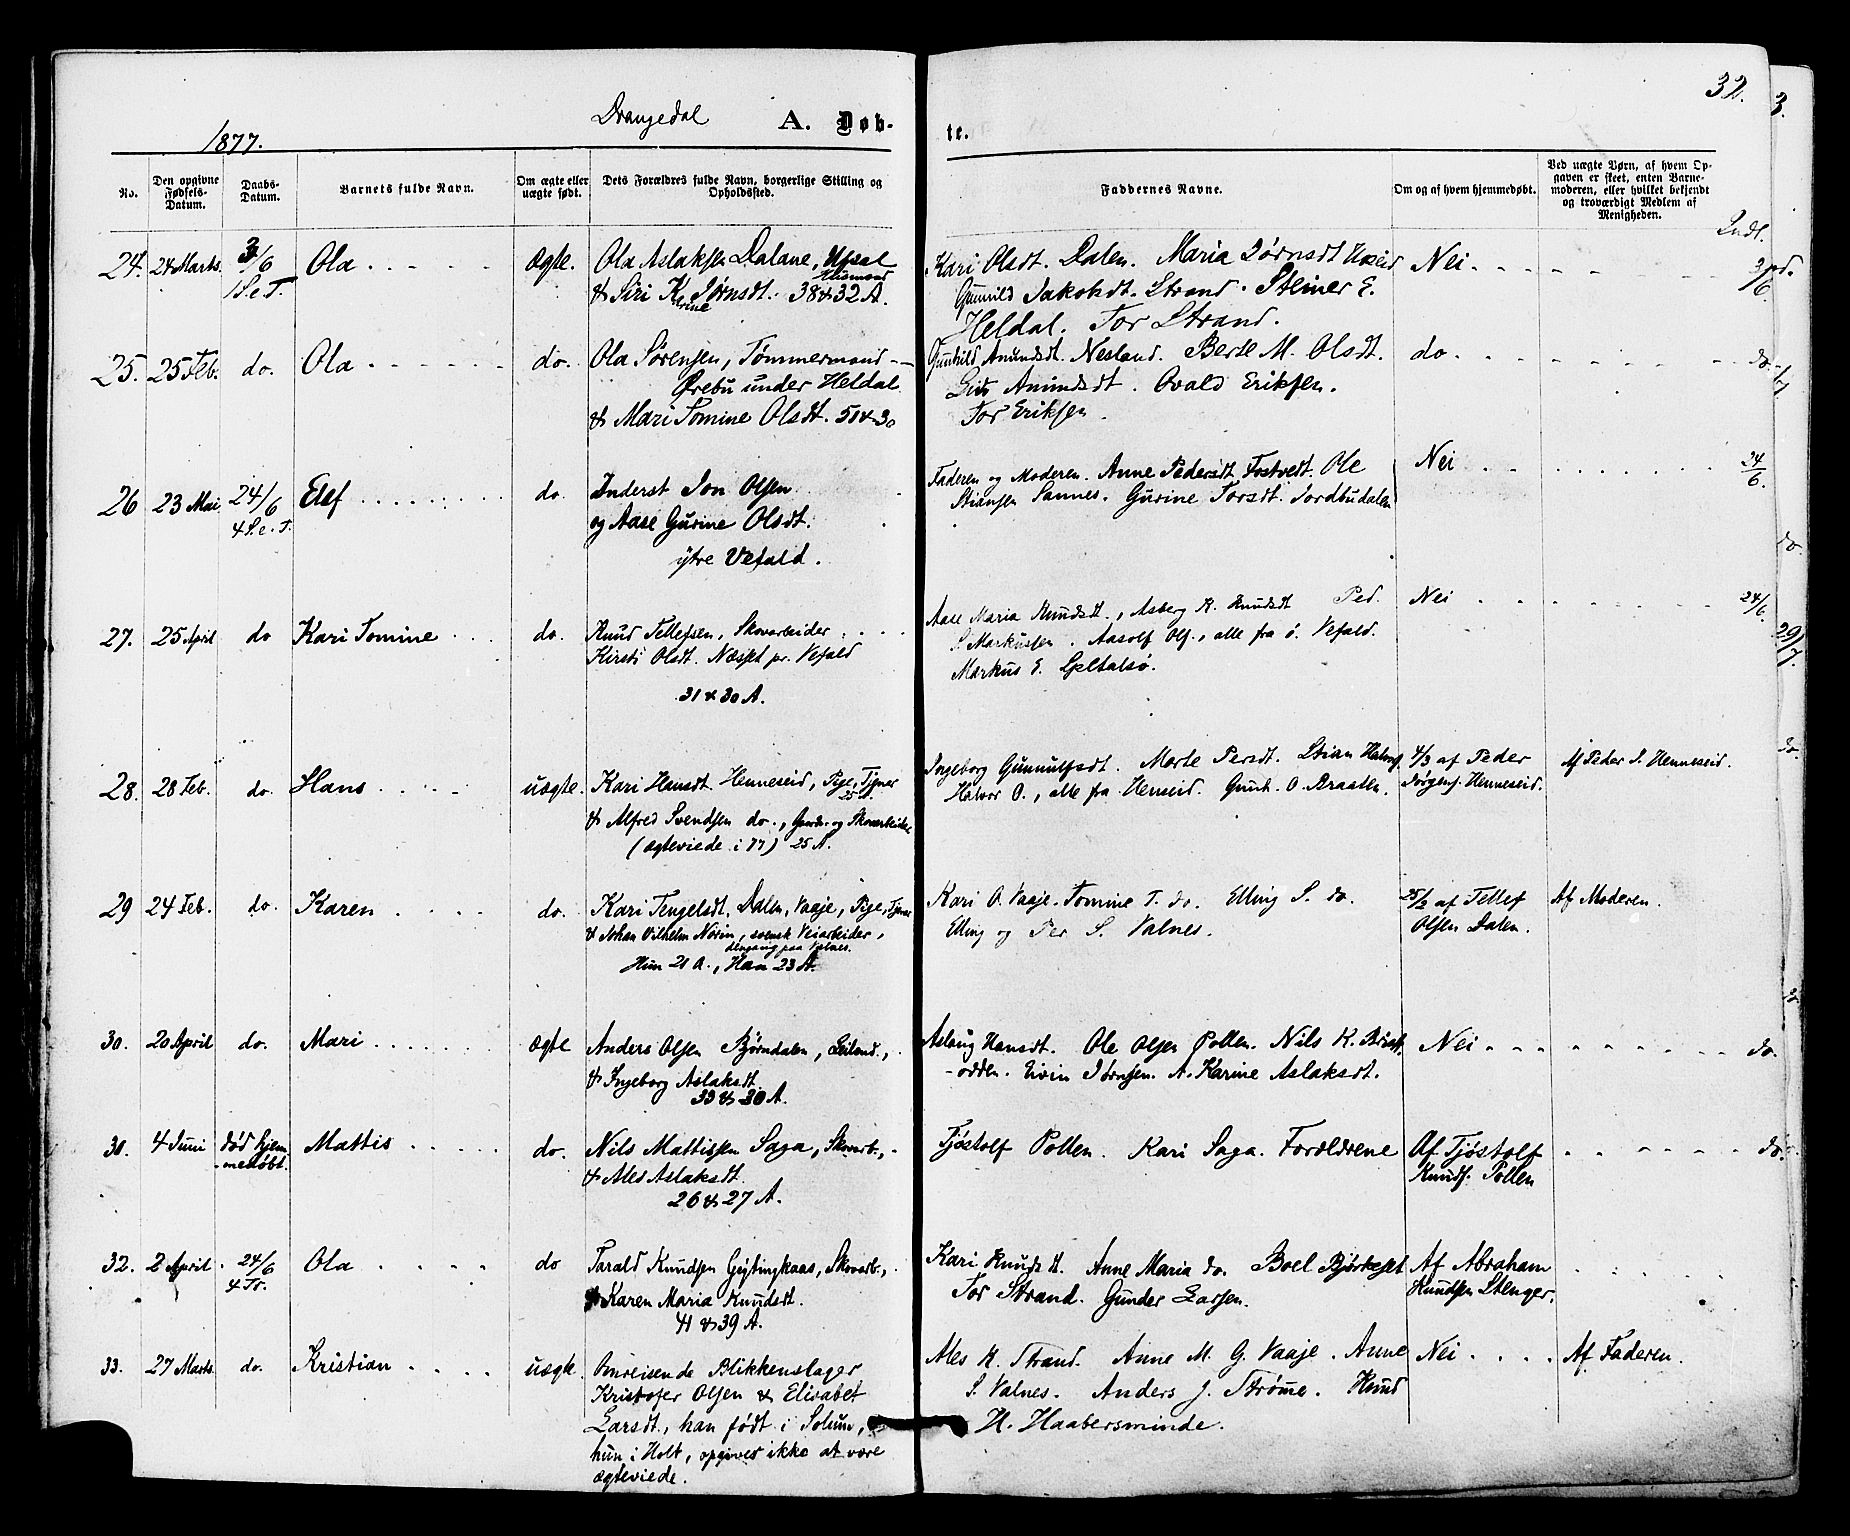 32.
Drangedal A. Døb-
te.
1877.
No.
Den opgivne Fødsels-Datum.
Daabs-Datum.
Barnets fulde Navn.
Om ægte eller uægte født.
Dets Forældres fulde Navn, borgerlige Stilling og Opholdssted.
Faddernes Navne.
Om og af hvem hjemmedøbt.
Ved uægte Børn, af hvem Opgaven er skeet, enten Barnemoderen, eller hvilket bekjendt og troværdigt Medlem af Menigheden.
Indl.
24. 24 Marts. 3/6 Ola Ægte. Ola Aslaksen Dalane,
1 S. e. T. & Siri Karine Jørnsdt. 38 & 32 A.
Husmand
Kari Olsdt. Dalen. Maria Jørnsdt
Gunild Jakobsdt. Strand. Steiner E.
Heldal. Tor Strand.
Nei 3/6
25. 25 Feb. do. Ola do. Ola Sørensen, Tømmermand
Ørebu under Heldal
& Mari Tomine Olsdt. 51 & 30
Gunhild Anundsdt. Nesland. Berte M. Olsdt.
Anundsdt. Ovald Eriksen.
Tor Eriksen.
do. do.
26 23 Mai 24/6 Elef do. Inderst Jon Olsen
4 S. e. T. og Aase Gurine Olsdt.
ytre Vefald.
Faderen og Moderen. Anne Pedersdt. Tostvedt. Ole
Stiansen Sannes. Gurine Torsdt. Jordbudalen
Nei 24/6.
27. 25 April do Kari Tomine do. Knud Tellefsen, Skovarbeider
Kirsti Olsdt. Næsset pr. Vefald
31 & 30 A.
Aase Maria Knudsdt., Asberg K. Knudsdt Ped.
S. Markussen. Aasolf Ols., alle fra ø. Vefald.
Markus E.
Nei 24/6.
28. 28 Feb. do. Hans uægte. Kari Hansdt. Henneseid, Pige, Tjener
25 A.
& Alfred Svendsen do., Gaardr. og Skovarbeider
(ægteviede i 77) 25 A.
Ingeborg Gunnulfsdt. Marte Persdt. Stian Halvors.
Halvor O., alle fra Henseid. Gunh. O. Braaten.
4/3 af Peder
Jørgens. Henneseid.
Af Peder J. Henneseid.
29 24 Feb. do. Karen do. Kari Tengelsdt. Dalen, Vaaje, Pige, Tjener
& Johan Vilhelm Norin, svensk Veiarbeider,
dengang paa Valnes.
Hun 21 A., Han 23 A.
Kari O. Vaaje. Tomine T. do. Elling S. do.
Elling og Per S. Valnes.
25/2 af Tellef
Olsen Dalen.
Af Moderen.
30. 20 April do. Mari Ægte Anders Olsen Bjørndalen, Leilend.,
& Ingeborg Aslaksdt.
33 & 30 A.
Aslaug Hansdt. Ole Olsen Pollen. Nils K.
-odden. Eivin Jørnsen. A. Karine Aslaksdt.
Nei do.
31. 4 Juni død hjem-
medøbt. Mattis do. Nils Mattissen Saga, Skovarb.,
& Ales Aslaksdt.
26 & 27 A.
Tjøstolf Pollen. Kari Saga. Forældrene
Af Tjøstolf
Knuds. Pollen
do.
32. 2 April 24/6 Ola do Tarald Knudsen Gejtingkaas, Skovarb.,
4 Tr. & Karen Maria Knudsdt.
41 & 39 A.
Kari Knudsdt. Anne Maria do. Boel Bjørkeset
Tor Strand. Gunder Larsen.
Af Abraham
Knudsen Stenger.
33. 27 Marts. do. Kristian uægte. Omreisende Blikkenslager
Kristofer Olsen & Elisabet
Larsdt., han født i Solum,
hun i Holt, opgives ikke at være
ægteviede.
Ales K. Strand. Anne M. G. Vaaje. Anne
S. Valnes. Anders J. Strøme. Knud
H. Haabersminde.
Nei Af Faderen.